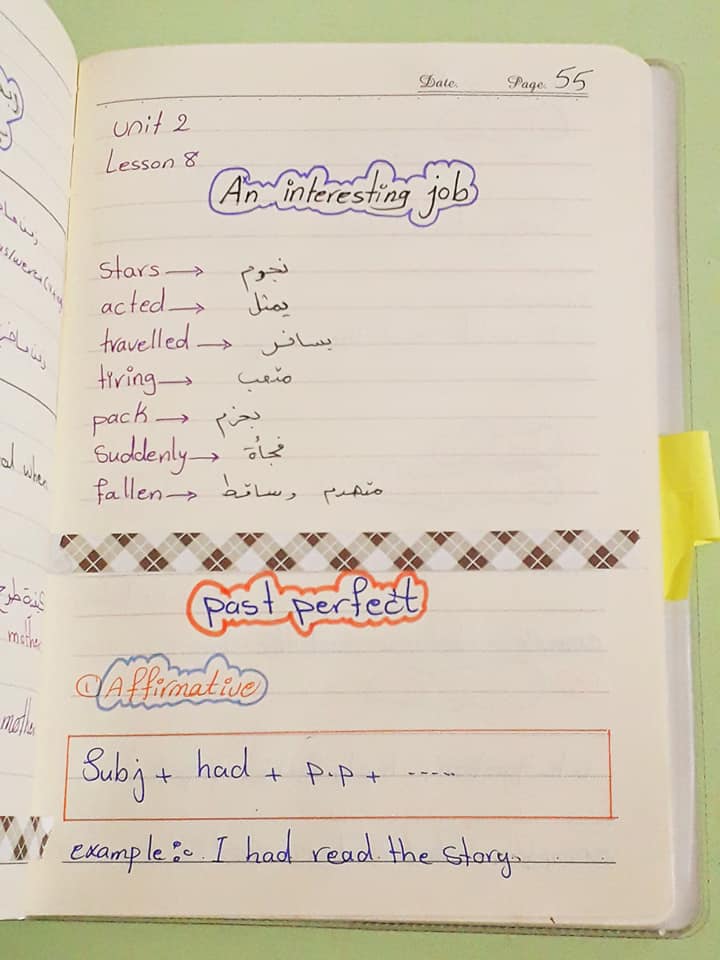 Date. Page. 55
Unit 2
Lesson 8
An interesting job
stars → نجوم
acted → يمثل
travelled → يسافر
tiring → متعب
pack → يحزم
suddenly → فجأة
fallen → متهدم وساقط
past perfect
① Affirmative
Subj + had + p.p + .....
example:. I had read the story.